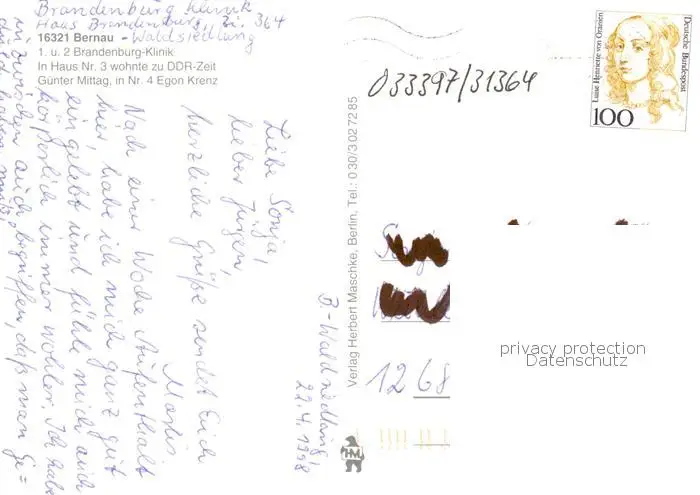 Brandenburg Klinik
Haus Brandenburg, Zi. 364
16321 Bernau - Waldsiedlung
1. u. 2 Brandenburg-Klinik
In Haus Nr. 3 wohnte zu DDR-Zeit
Günter Mittag, in Nr. 4 Egon Krenz
B-Waldsiedlung,
22.4.1998
Liebe Sonja,
lieber Jürgen,
herzliche Grüße sendet Euch
Martin.
Nach einer Woche Aufenthalt
hier habe ich mich ganz gut
eingelebt und fühle mich auch
körperlich immer wohler. Ich habe
inzwischen auch begriffen, daß man Ge=
Verlag Herbert Maschke, Berlin, Tel.: 0 30/3 02 72 85
HM
033397/31364
Deutsche Bundespost
Luise Henriette von Oranien
100
1268
privacy protection
Datenschutz